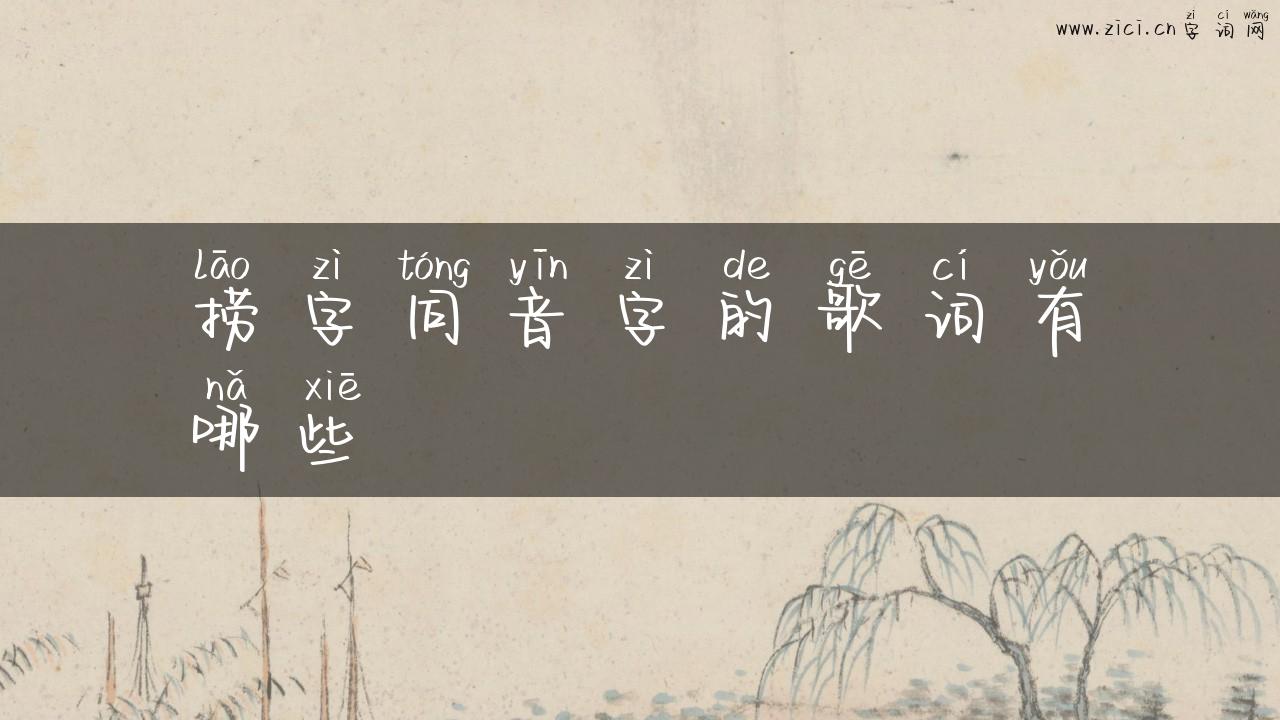 zì cí wǎng
www.zici.cn 字词网
lāo zì tóng yīn zì de gē cí yǒu
捞字同音字的歌词有
nǎ xiē
哪些